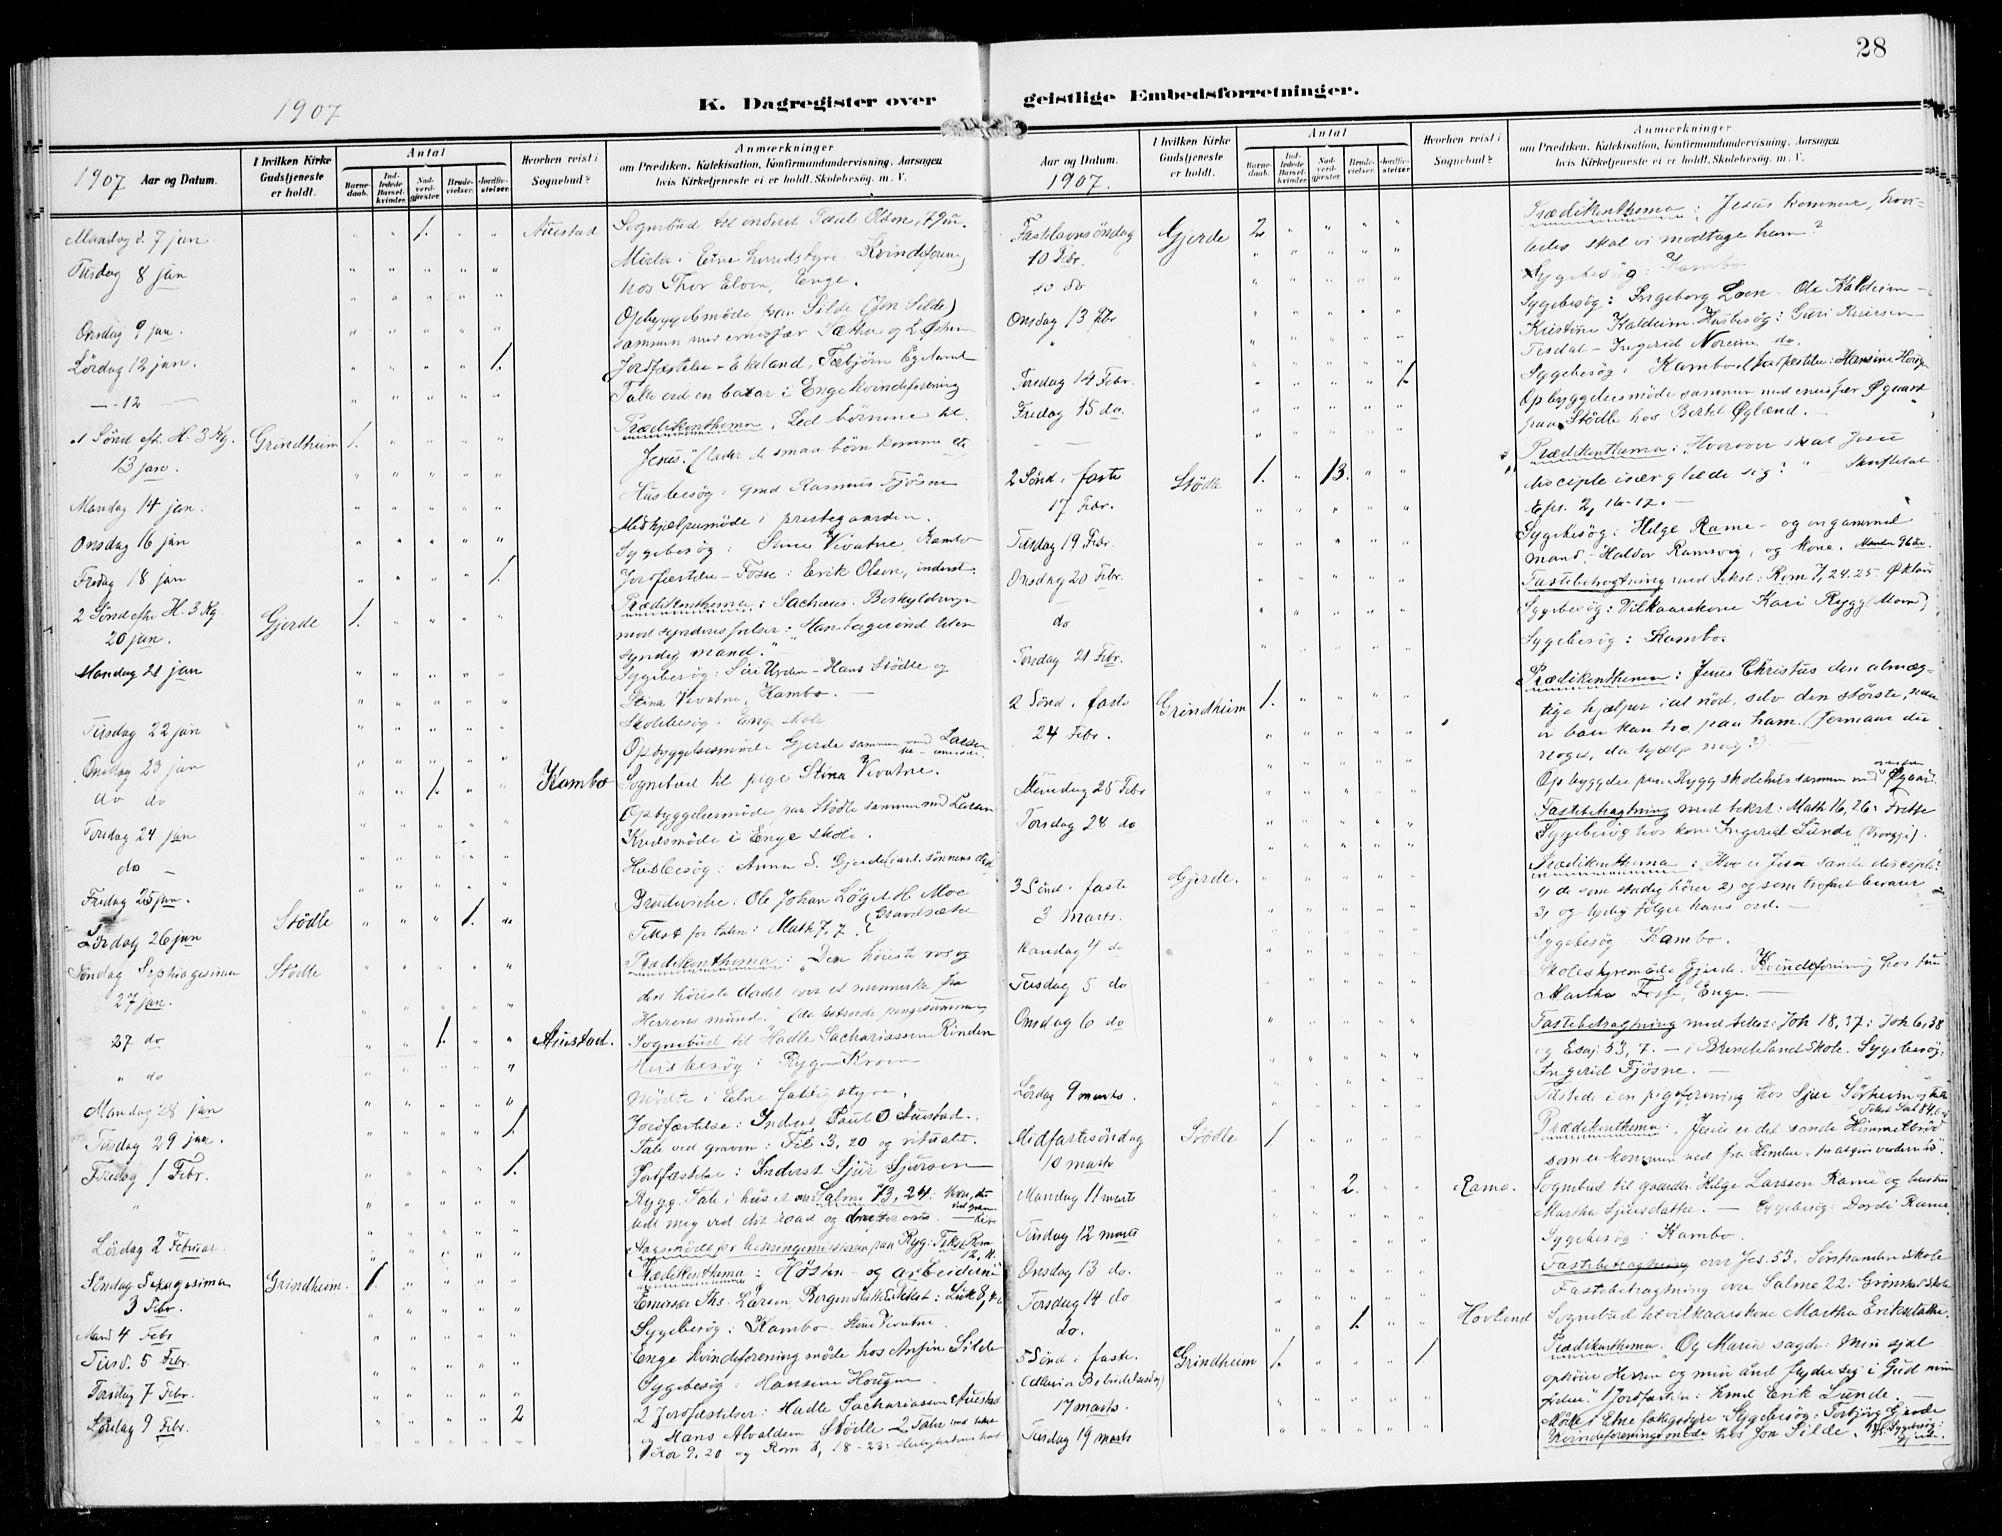 28
1907
K. Dagregister over geistlige Embedsforretninger.
1907 Aar og Datum.
I hvilken Kirke Gudstjeneste er holdt.
Antal
Barnedaab.
Indledede Barselkvinder.
Nadverdgjæster
Brudevielser.
Jordfæstelser.
Hvorhen reist i Sognebud?
Anmærkninger
om Prædiken, Katekisation, Konfirmandundervisning, Aarsagen
hvis Kirketjeneste ei er holdt. Skolebesøg. m. V.
Mandag d. 7 jan. 1. Auestad Sognebud til inderst Paul Olsen, 79
Tirsdag 8 jan Møde i Etne herredstyre. Kvindeforen.
hos Thor Elven, Enge.
Onsdag 9 jan. Opbyggelsesmøde paa Silde (Jon Silde)
sammen med Sætha og L. Østrem
Lördag 12 jan. 1. Jordfæstelse - Ekeland, Torbjörn Egeland
- 12 - Tale ved en bazar i Enge kvindeforening
1 Sönd eft. H. 3 Kg. Grindheim 1. Prædikenthema: Led börnene til
13 jan. Jesus." (lader de smaa börn komme etc
Mandag 14 jan. Husbesøg: gmd Rasmus Fjösne
Onsdag 16 jan Medhjælpermöde i prestegaarden.
Sygebesøg: Stina Vivatne, Kambo
Fredag 18 jan 1. Jordfæstelse - Fosse: Erik Olsen, inderst.
2 Sönd efter H. 3 Kg Gjerde 1. Prædikenthema: Sachæus. Beskyldningen
20 jan. mod syndernes frelser: "Han tager ind til en
syndig mand."
Mandag 21 jan Sygebesøg: Siri Urden - Hans Stödle og
Stina Vivatne, Kambo. -
Tirsdag 22 jan Skolebesøg i Enge skole
Onsdag 23 jan Opbyggelsesmøde Gjerde sammen med Larsen
do do 1. Kambo Sognebud til pige Stina Vivatne.
Torsdag 24 jan Opbyggelsesmøde paa Stödle sammen med Larsen
do - Kredsmøde i Enge skole.
Fredag 25 jan. Husbesøg: Anna S. Gjerde (anl. sönnens död
Lördag 26 jan Stödle 1. Brudevielse: Ole Johan Löge H. Moe
Tekst for talen: Math 7, 7.
Söndag Septuagesima Stödle Prædikenthema: "Den höieste ros og
27 jan. den höieste dadel over et menneske fra
Herrens mund." (de betroede pengesummer
27 do 1. Auestad. Sognebud til Hadle Sachariassen Rinden
" do Husbesøg: Rygg - Kroen
Mandag 28 jan Møde i Etne fattigstyre.
Tirsdag 29 jan. 1. Jordfæstelse: Inderst Paul O Auestad.
Tale ved graven: Fil 3, 20 og ritualt.
Fredag 1 Febr. 1. Jordfæstelse: Inderst Sjur Sjursen
Rygg. Tale i huset over Salme 73, 24:
Lördag 2 Februar. paa Rygg: Tekst Rom
12, 11.
Söndag Sexagesima Grindheim. 1. Prædikenthema: Høsten - og arbeiderne
3 Febr. Emissær Ths. Larsen, Tekst: Luk 8, 4
Mand 4 Febr Sygebesøg: Kambo Stina Vivatne.
Tirsd. 5 Febr. Enge kvindeforening möde hos Silde
Torsdag 7 Febr. Sygebesøg: Hansine Hougen
Lördag 9 Febr. 2 2 Jordfæstelser: Hadle Sachariassen Auestad
og Hans Alvaldsen Stödle - 2 taler med tekst
1 Kor 9, 20 og Rom 8, 18-23:
Aar og Datum.
1907.
I hvilken Kirke Gudstjeneste er holdt.
Antal
Barnedaab.
Indledede Barselkvinder.
Nadverdgjæster
Brudevielser.
Jordfæstelser.
Hvorhen reist i Sognebud?
Anmærkninger
om Prædiken, Katekisation, Konfirmandundervisning, Aarsagen
hvis Kirketjeneste ei er holdt. Skolebesøg. m. V.
Fastelavnsöndag Gjerde 2 Prædikenthema: Jesus kommer, hvor-
10 Febr. ledes skal vi modtage ham?
10 do Sygebesøg: Kambo
Onsdag 13 Febr Sygebesøg: Ingeborg Loen - Ole Kaldheim -
Kristine Kaldheim. Husbesøg: Guri
Tesdal - Ingerid Noreim do.
Torsdag 14 Febr. 1. Sygebesøg: Kambo Jordfæstelse: Hansine Hougen
Fredag 15 do Opbyggelsesmøde sammen med emissær Øgaard
- - paa Stödle hos Bertel Øyland. -
2 Sönd i faste Stödle 1. 13. Prædikenthema: Hvorover skal Jesu
17 Febr. disciple især glæde sig? " - Skriftetale
Efes. 2, 16-17. -
Tirsdag 19 Febr. Sygebesøg: Helge Rame - og en gammel
mand, Haldor Ramsvig, og kone. Manden 96 aar.
Onsdag 20 Febr. Fastebetragtning med tekst: Rom 7, 24.25.
- do Sygebesøg: Vilkaarskone Kari Rygg (Moen)
Torsdag 21 Febr. Sygebesøg: Kambo.
2 Sönd. i faste Grindheim 1. Prædikenthema: Jesus Christus den almæg-
24 Febr. tige hjælper i al nöd, selv den störste, naar
vi bare kan tro paa ham. (Formaar du
noget, da hjælp mig?).
Mandag 25 Febr Opbyggelse paa Rygg skolehus sammen med Øgaard
Torsdag 28 do Fastebetragtning med tekst. Math 16, 26: Frette
Sygebesøg hos kone Ingerid Lunde
3 Sönd. i faste Gjerde. Prædikenthema: Hvo er Jesu sande disciple?
3 marts. 1) de som stadig hörer 2) og som trofast bevarer
3) og lydig fölger hans ord. -
Mandag 4 do Sygebesøg Kambo.
Tirsdag 5 do Skolestyremöde Gjerde. Kvindeforening hos fru
Martha Fosse, Enge. -
Onsdag 6 do Fastebetragtning med tekst: Joh 18, 37: Joh 6, 38
og Esaj 53, 7. - i Brendeland skole. Sygebesøg:
Ingerid Fjösne. -
Lördag 9 marts. Tilstede i en pigeforening hos Sjur Sörheim
Midfastesöndag Stödle 1 Prædikenthema: "Jesus er det sande Himmelbröd
10 marts som er kommen ned fra Himlen
Mandag 11 marts 2. Rame. Sognebud til gaardbr. Helge Larssen Rame og hustru
Martha Sjursdatter. - Sygebesøg: Dordi Rame
Tirsdag 12 marts Sygebesøg: Kambo.
Onsdag 13 do. Fastebetragtning over Jes. 53. Sörstranden skole
Torsdag 14 do Fastebetragtning over Salme 22: Grönstad skole
do. 1. Hovland Sognebud til vilkaarskone Martha Eriksdatter
5 Sönd i faste. Grindheim 1. 1. Prædikenthema. "Og Maria sagde: Min sjæl
(Mariæ Bebudelsesdag) ophöier Herren og min aand fryder sig i Gud min
17 marts. frelser." Jordfæstelse: Erik Lunde. -
Tirsdag 19 marts Møde i Etne Sygebesøg: Torbjörg Gjerde
Kvindeforeningsmøde hos Jon Silde. Sygebesøg: Gjerde.